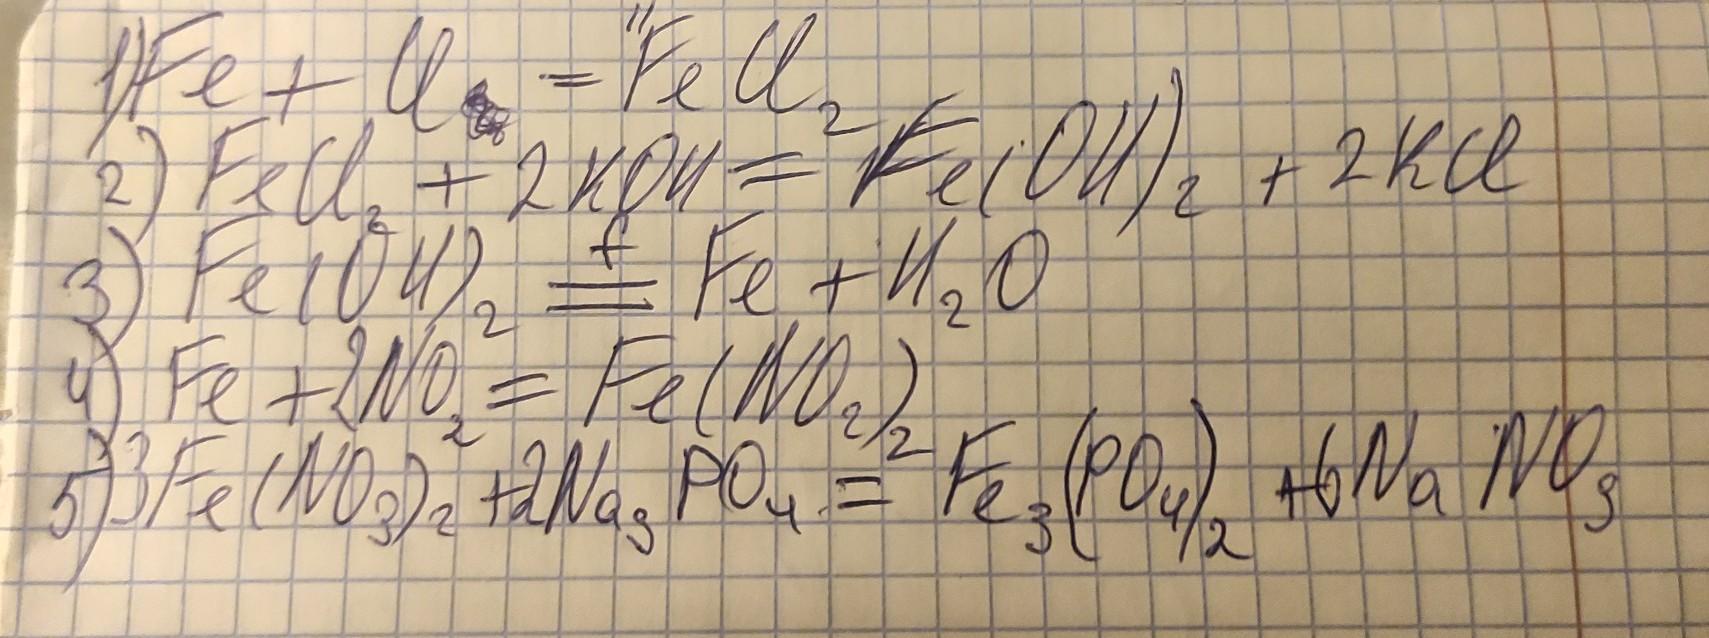 1) Fe + Cl = "FeCl₂
2) FeCl₂ + 2KOH = Fe(OH)₂ + 2KCl
3) Fe(OH)₂ =t= Fe + H₂O
4) Fe + 2NO₂ = Fe(NO₂)₂
5) 3Fe(NO₃)₂ + 2Na₃PO₄ = Fe₃(PO₄)₂ + 6NaNO₃